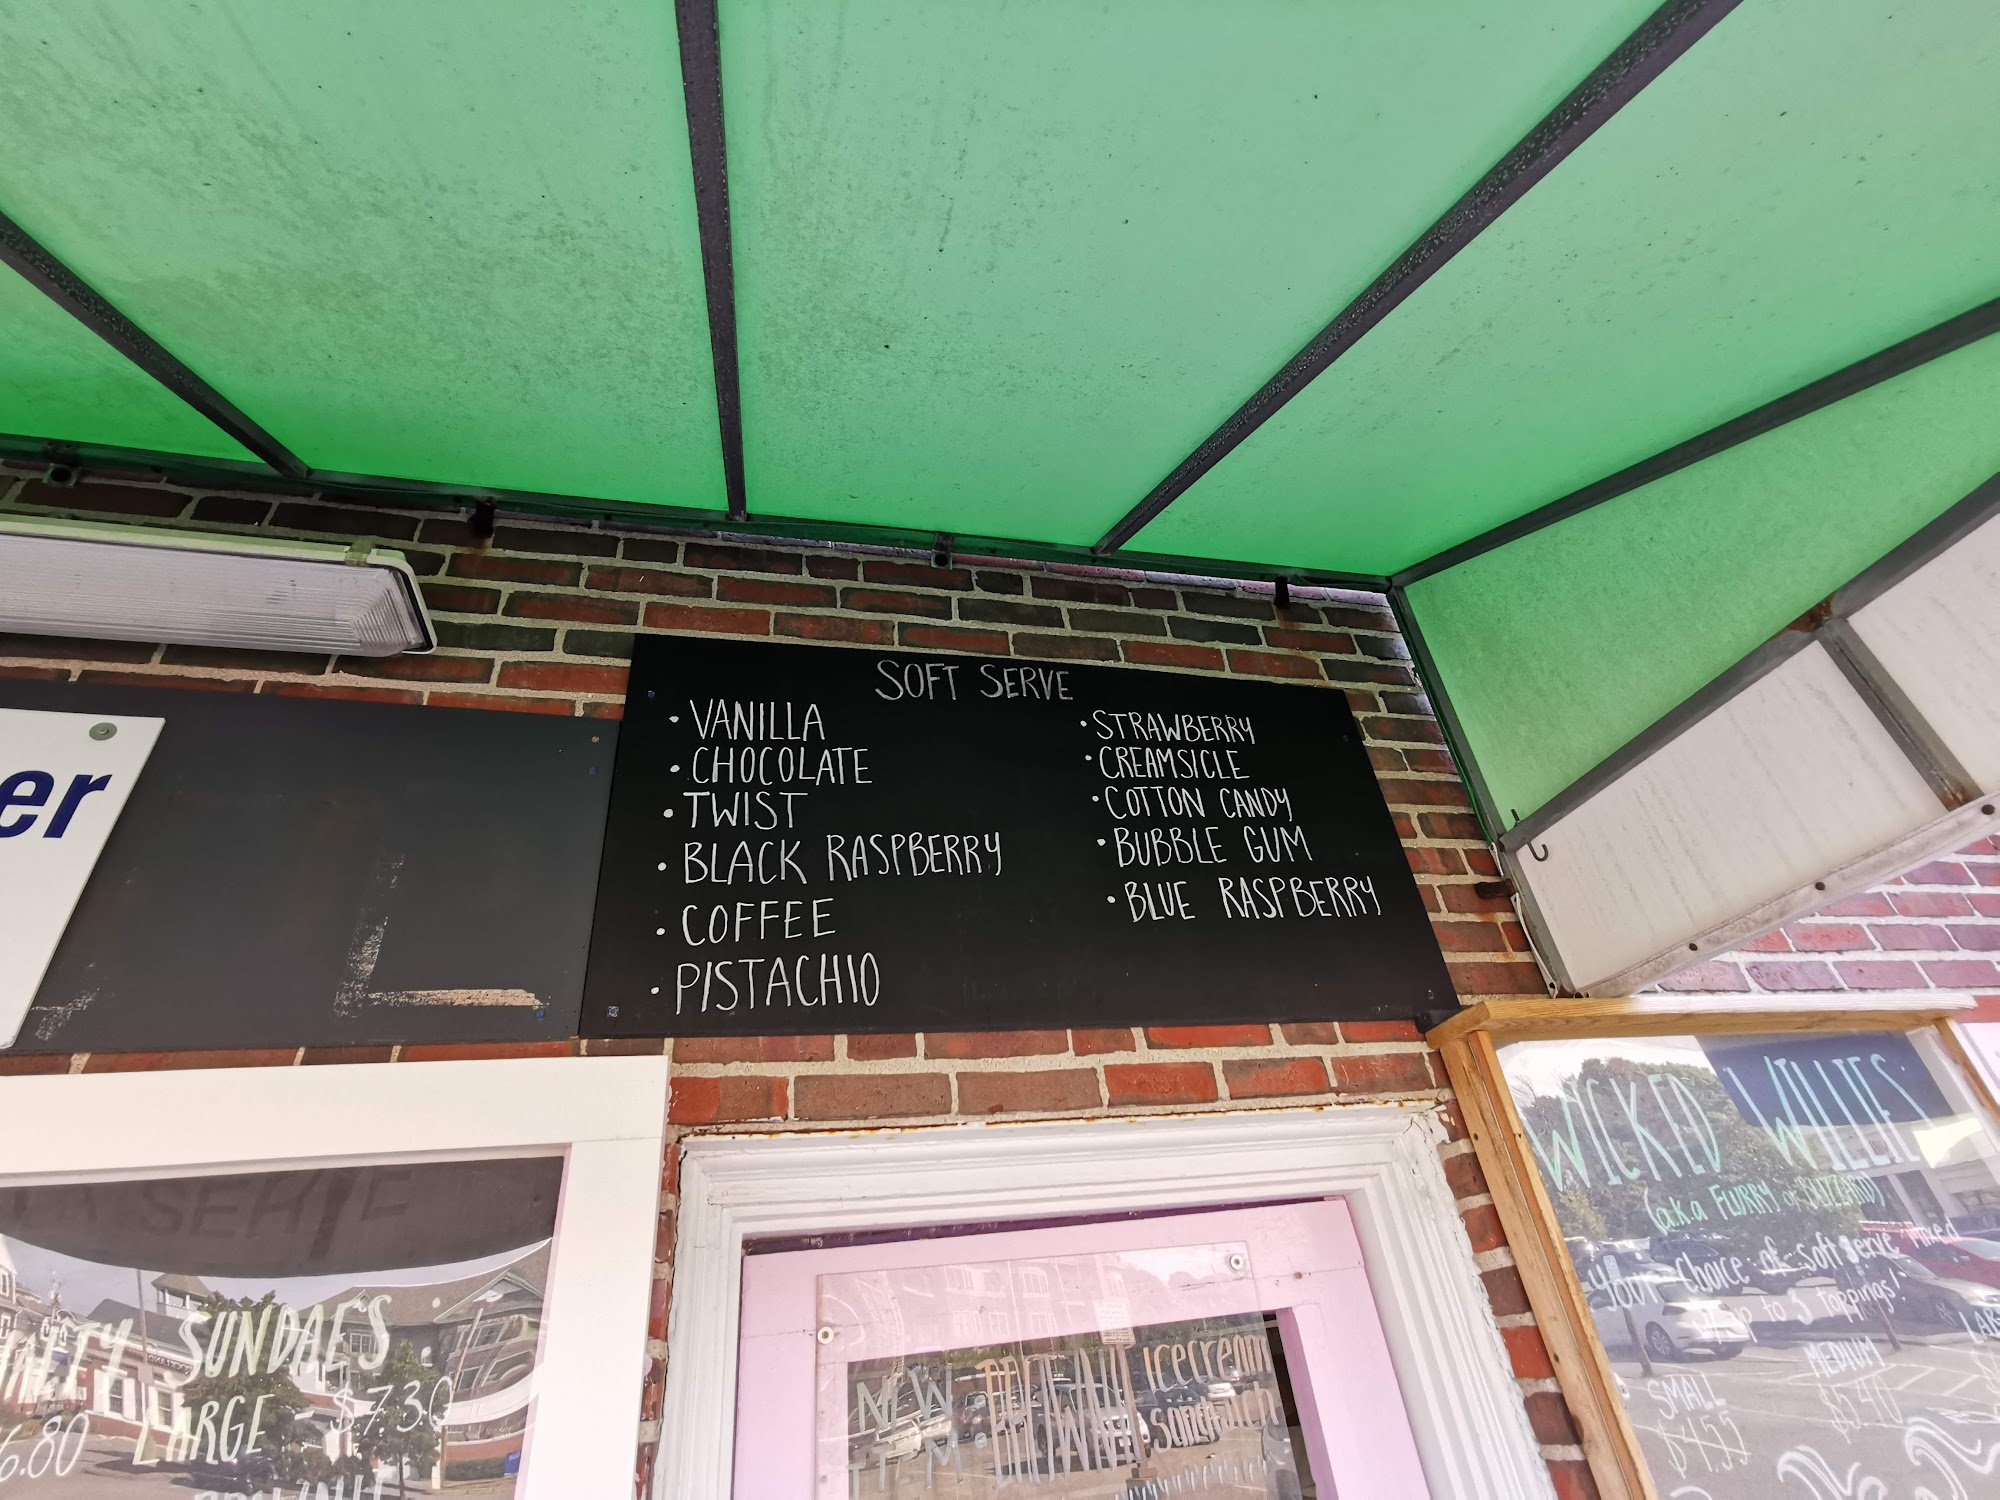 SOFT SERVE
• VANILLA
• CHOCOLATE
• TWIST
• BLACK RASPBERRY
• COFFEE
• PISTACHIO
• STRAWBERRY
• CREAMSICLE
• COTTON CANDY
• BUBBLE GUM
• BLUE RASPBERRY
er
SUNDAES
6.80 LARGE - $7.30
NEW
ITEM
icecream
sandwich
WICKED WILLIES
(a.k.a FLURRY or BLIZZARD)
Your choice of soft serve mixed
up to 3 toppings!
SMALL
$4.55
MEDIUM
$5.40